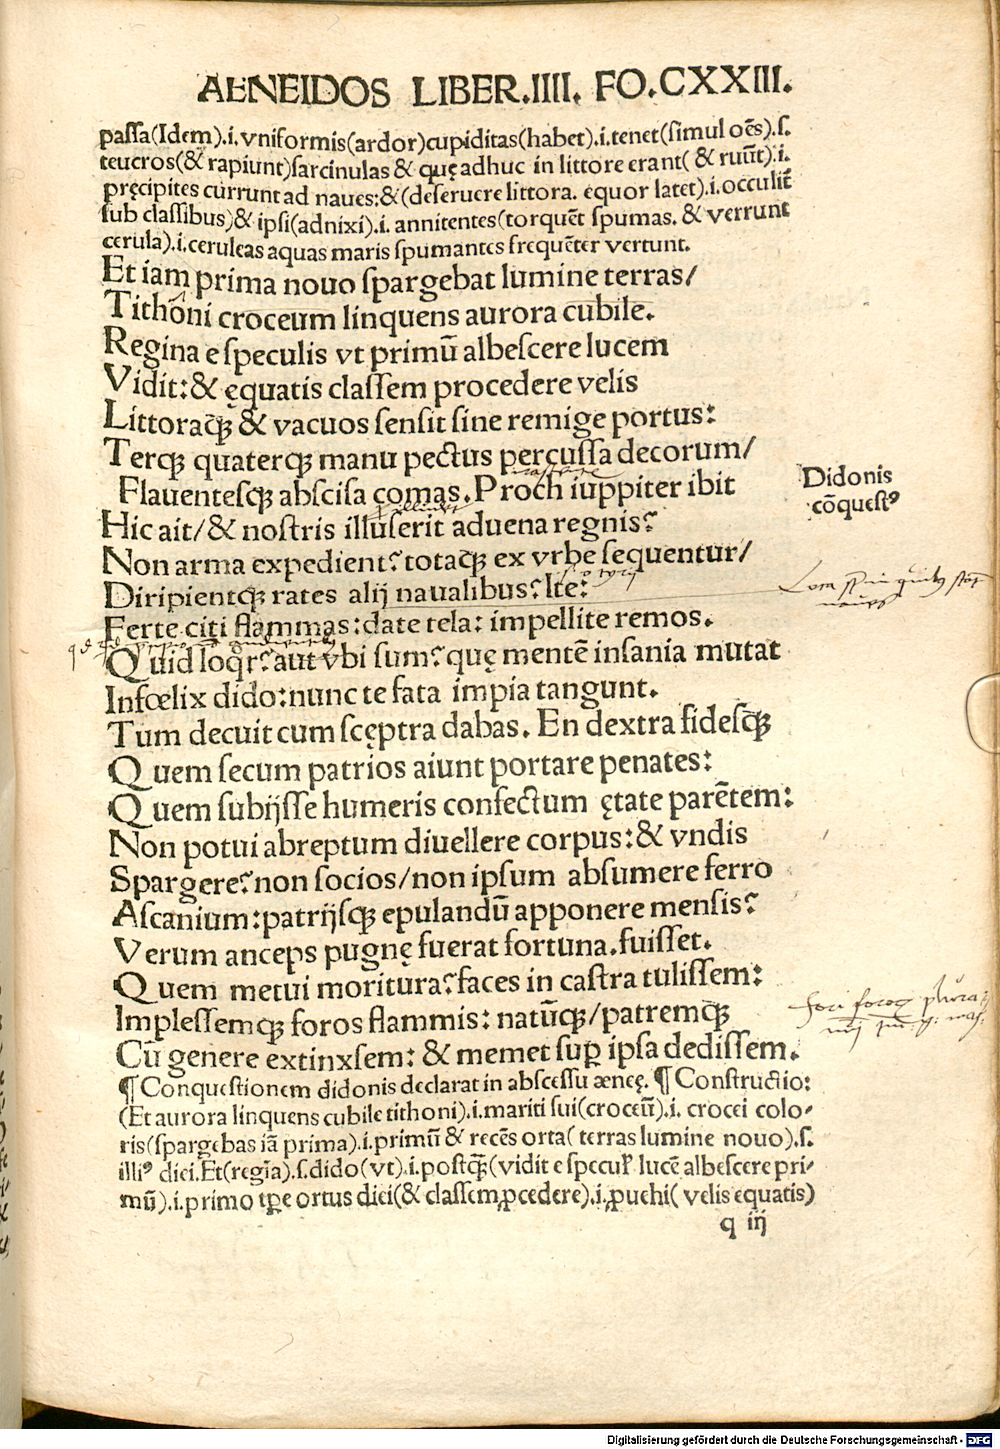 AENEIDOS LIBER.IIII. FO.CXXIII.
paſſa(Idem).i.vniformis(ardor)cupiditas(habet).i.tenet(ſimul oe᷒s).ſ.
teucros(& rapiunt)ſarcinulas & quę adhuc in littore erant( & ruūt).i.
pręcipites currunt ad naues:&(deſeruere littora. equor latet).i.occulit᷑
ſub claſſibus)& ipſi(adnixi).i. annitentes(torquēt ſpumas. & verrunt
cerula).i.ceruleas aquas maris ſpumantes frequēter vertunt.
Et iam prima nouo ſpargebat lumine terras/
Tithoni croceum linquens aurora cubile.
Regina e ſpeculis vt primū albeſcere lucem
Vidit:& ęquatis claſſem procedere velis
Littoraq̃ & vacuos ſenſit ſine remige portus:
Terq̃ quaterq̃ manu pectus percuſſa decorum/
Flauenteſq̃ abſciſa comas.Proch iuppiter ibit
Didonis
cōqueſtꝰ
Hic ait/& noſtris illuſerit aduena regnis?
Non arma expedient? totaq̃ ex vrbe ſequentur/
Diripientq̃ rates alij naualibus? Ite:
Ferte citi flammas:date tela: impellite remos.
Quid loq̄r? aut vbi ſum? quę mentē inſania mutat
Infœlix dido:nunc te fata impia tangunt.
Tum decuit cum ſcęptra dabas. En dextra fideſq̃
Quem ſecum patrios aiunt portare penates:
Quem ſubijſſe humeris confectum ętate parētem:
Non potui abreptum diuellere corpus:& vndis
Spargere? non ſocios/non ipſum abſumere ferro
Aſcanium:patrijſq̃ epulandū apponere menſis?
Verum anceps pugnę fuerat fortuna.fuiſſet.
Quem metui moritura? faces in caſtra tuliſſem:
Impleſſemq̃ foros flammis: natūq̃/patremq̃
Cū genere extinxſem: & memet ſuꝑ ipſa dediſſem.
¶ Conqueſtionem didonis declarat in abſceſſu æneę. ¶ Conſtructio:
(Et aurora linquens cubile tithoni).i.mariti ſui(croceū).i. crocei colo-
ris(ſpargebas iā prima).i.primū & recēs orta( terras lumine nouo).ſ.
illiꝰ diei.Et(regīa).ſ.dido(vt).i.poſtq̃(vidit e ſpecul᷑ lucē albeſcere pri-
mū).i.primo tꝑe ortus diei(& claſſem ꝓcedere).i.ꝓuehi( velis equatis)
q iij
Digitalisierung gefördert durch die Deutsche Forschungsgemeinschaft - DFG